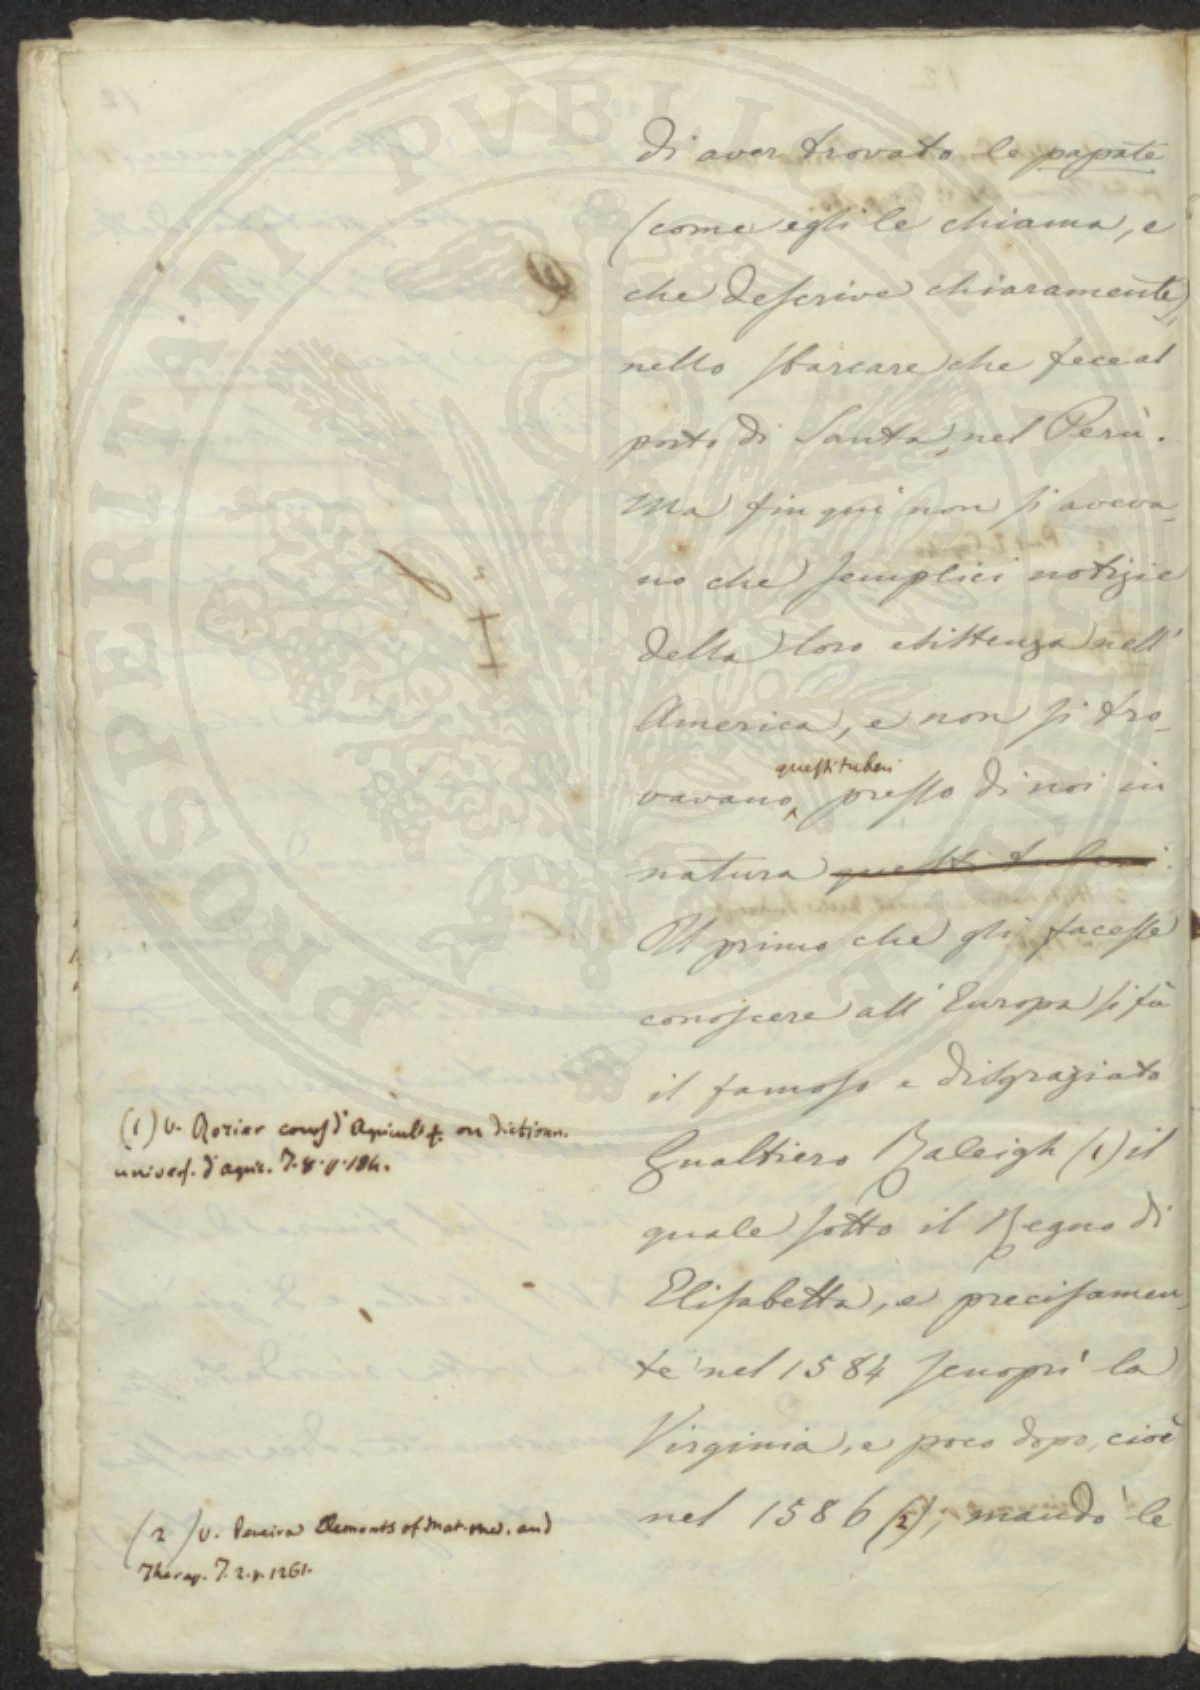 di aver trovato le papate
(come egli le chiama, e
che descrive chiaramente),
nello sbarcare che fece al
porto di Santa, nel Perù.
Ma fin qui non si aveva-
no che semplici notizie
della loro esistenza nell'
America, e non si tro-
questi tuberi
vavano, presso di noi in
natura questi tuberi.
Il primo che gli facesse
conoscere all'Europa si fù
il famoso e disgraziato
Gualtiero Raleigh (1) il
quale sotto il Regno di
Elisabetta, e precisamen-
te nel 1584 scuoprì la
Virginia, e poco dopo, cioè
nel 1586 (2), mandò le
(1) V. Rozier cours d'Agricult. ou diction.
univers. d'agric. T. 8. p. 184.
(2) V. Pereira Elements of Mat. med. and
Therap. T. 2. p. 1261.
PROSPERITATI PVBLICAE